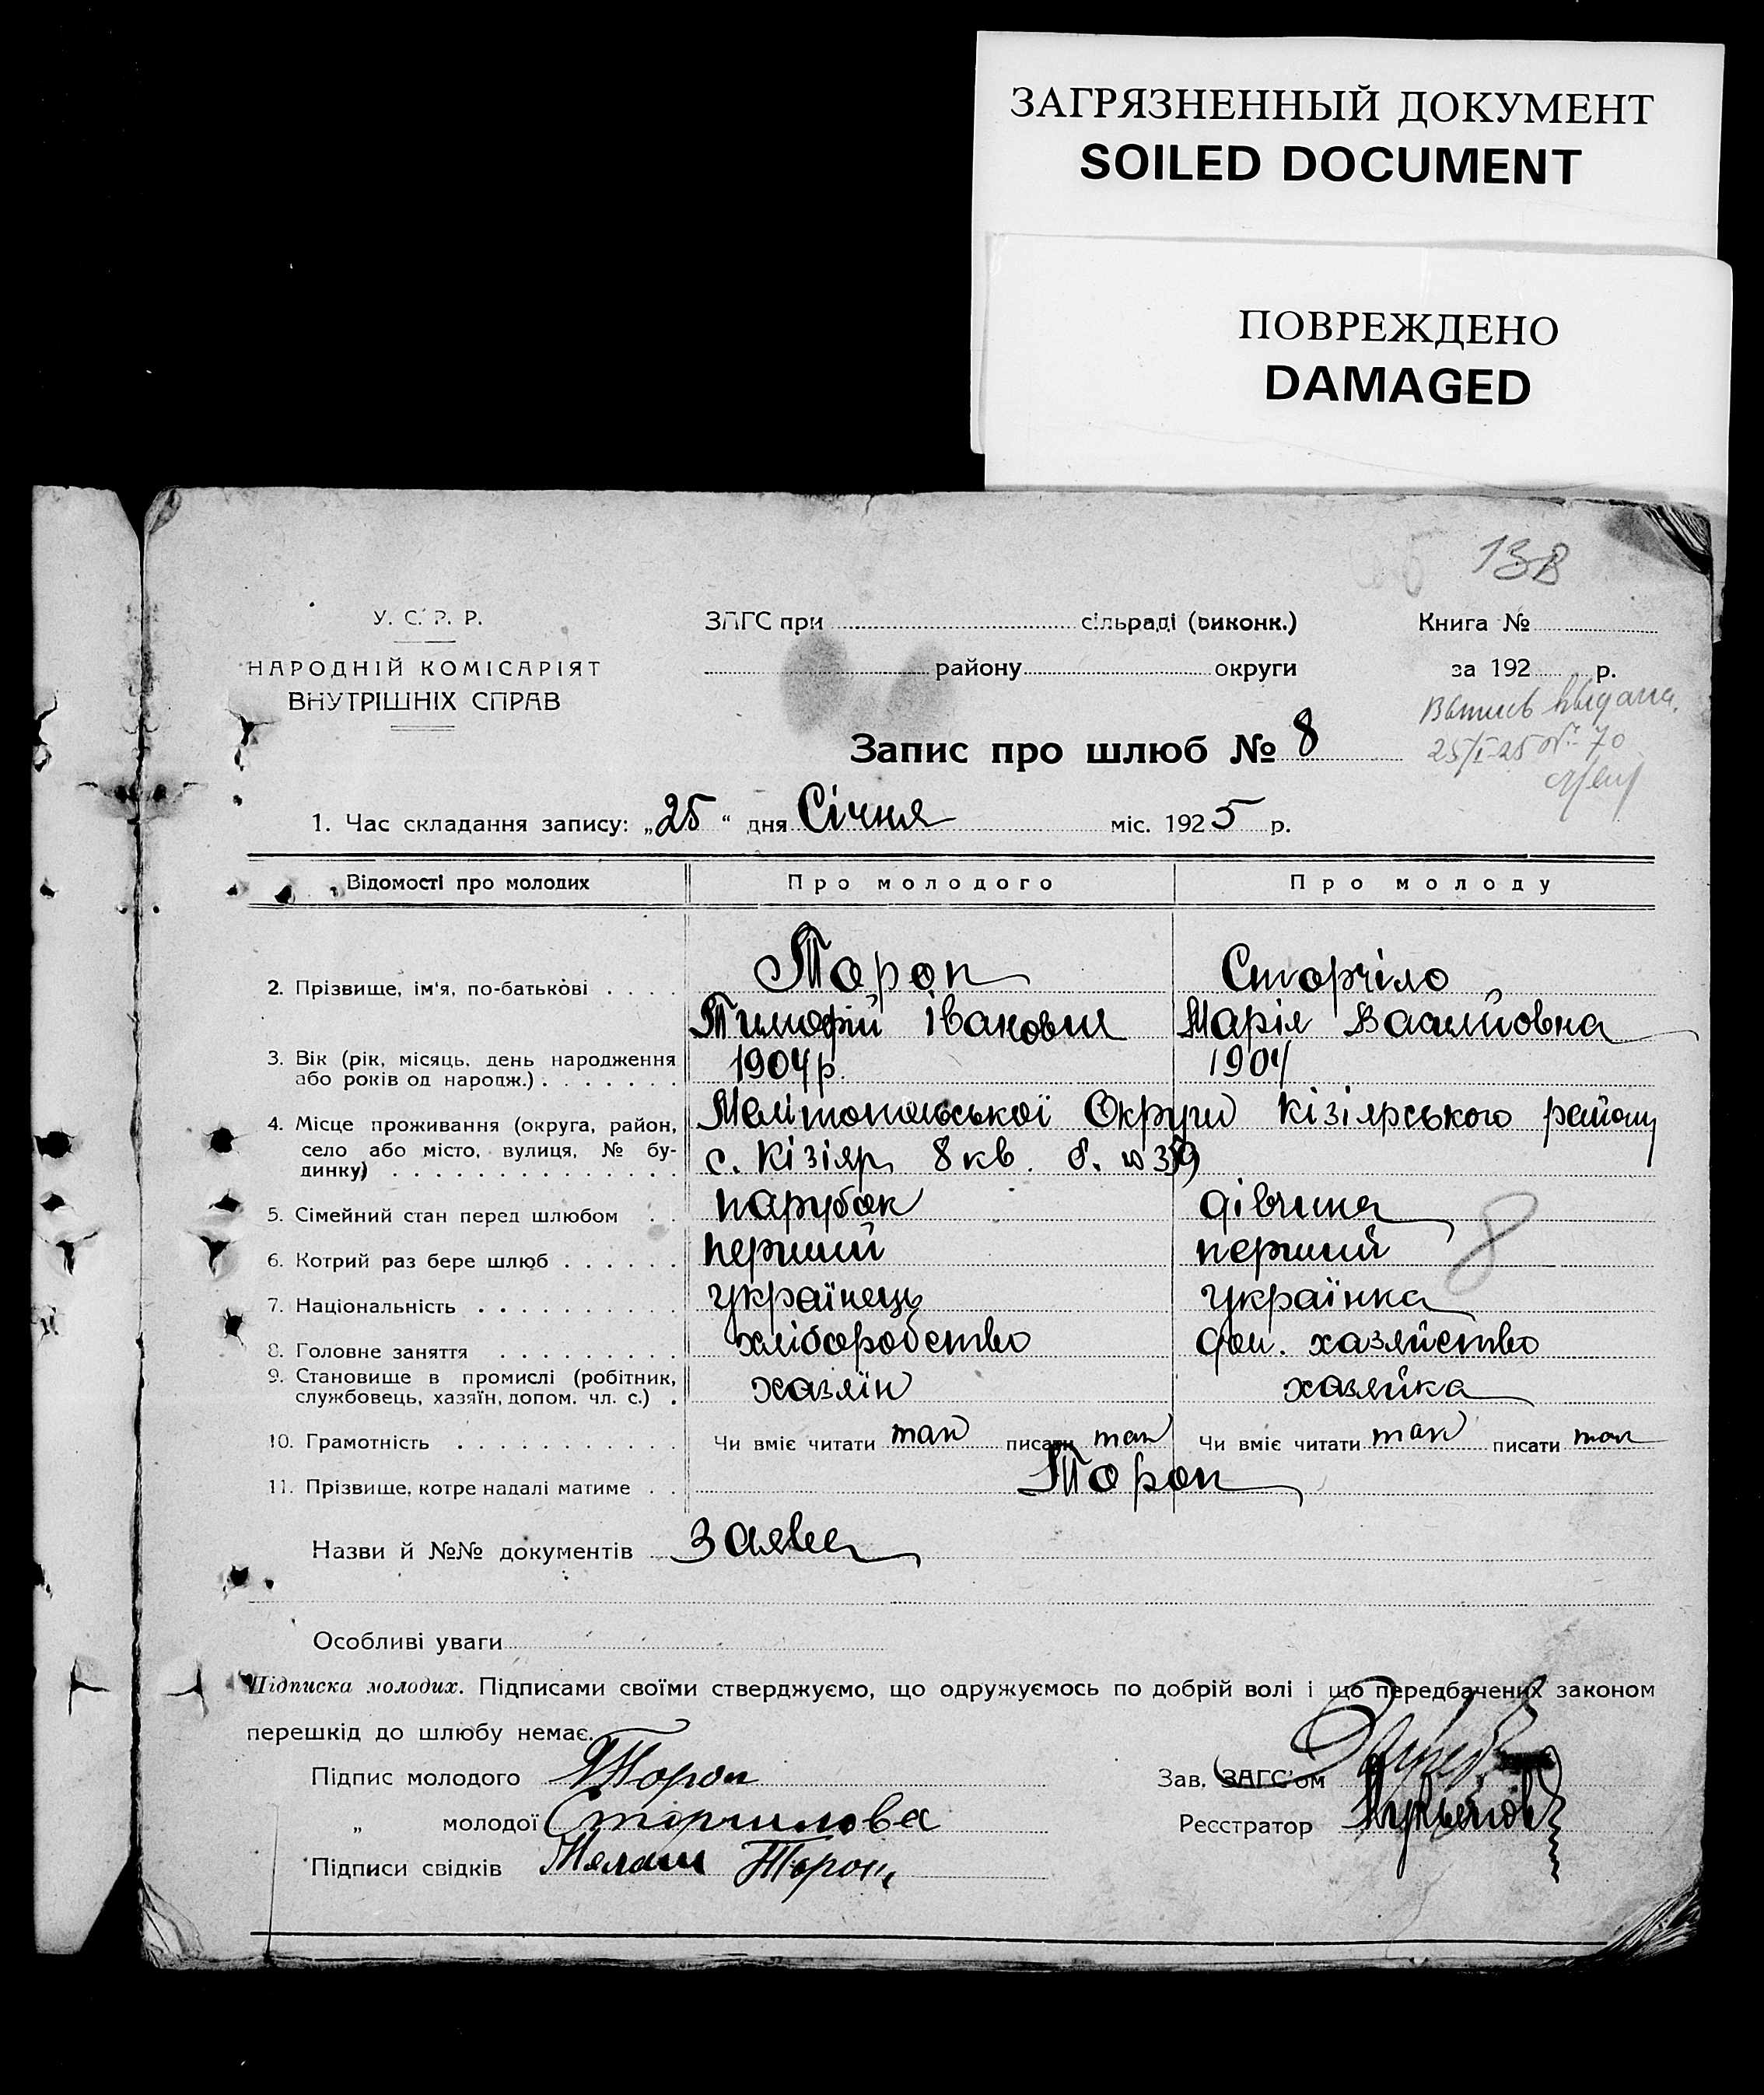 ЗАГРЯЗНЕННЫЙ ДОКУМЕНТ
SOILED DOCUMENT
ПОВРЕЖДЕНО
DAMAGED
У. С. Р. Р.
НАРОДНІЙ КОМІСАРІЯТ
ВНУТРІШНІХ СПРАВ
ЗАГС при сільраді (виконк.)
району округи
Книга №
за 192 р.
Выпись выдана
25/I-25 № 70
Запис про шлюб № 8
1. Час складання запису: „25“ дня Січня міс. 1925 р.
Відомості про молодих Про молодого Про молоду
2. Прізвище, ім'я, по-батькові Тороп Сторчіло
Тимофій Іванович Марія Василівна
3. Вік (рік, місяць, день народження 1904 р. 1904
або років од народж.)
4. Місце проживання (округа, район, Мелітопольської Округи Кізіярського району
село або місто, вулиця, № бу- с. Кізіяр 8 кв. д. №
динку)
5. Сімейний стан перед шлюбом парубок дівчина
8
6. Котрий раз бере шлюб перший перший
7. Національність українець українка
8. Головне заняття хліборобство дом. хазяйство
9. Становище в промислі (робітник, хазяїн хазяйка
службовець, хазяїн, допом. чл. с.)
10. Грамотність Чи вміє читати так писати так Чи вміє читати так писати так
11. Прізвище, котре надалі матиме Тороп
Назви й №№ документів Заява
Особливі уваги
Підписка молодих. Підписами своїми стверджуємо, що одружуємось по добрій волі і що передбачених законом
перешкід до шлюбу немає.
Підпис молодого Тороп Зав. ЗАГС'ом
„ молодої Сторчилова Реєстратор
Підписи свідків Тороп